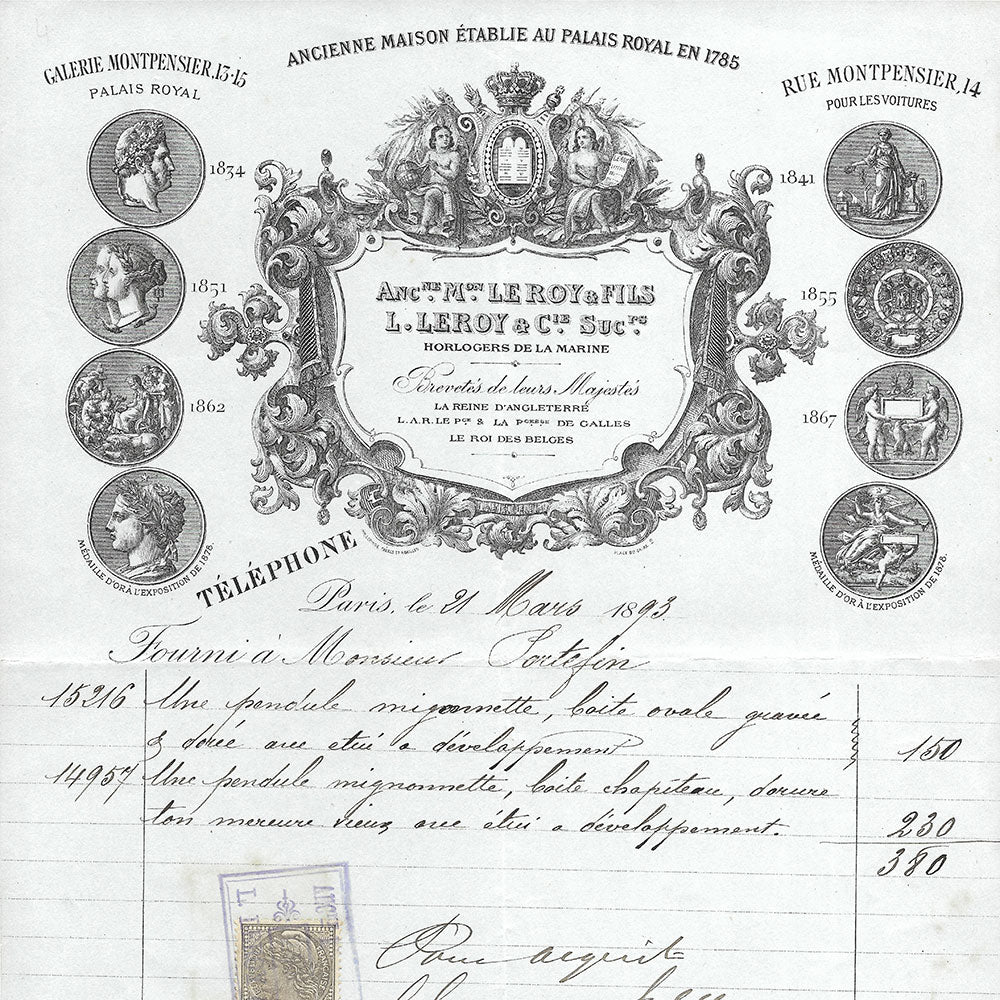 ANCIENNE MAISON ÉTABLIE AU PALAIS ROYAL EN 1785
GALERIE MONTPENSIER, 13-15
PALAIS ROYAL
RUE MONTPENSIER, 14
POUR LES VOITURES
1834
1841
1851
1855
1862
1867
MÉDAILLE D'OR À L'EXPOSITION DE 1878.
MÉDAILLE D'OR À L'EXPOSITION DE 1878.
ANCNE MON LEROY & FILS
L. LEROY & CIE SUCRS
HORLOGERS DE LA MARINE
Brevetés de leurs Majestés
LA REINE D'ANGLETERRE
L.A.R. LE PCE & LA PCESSE DE GALLES
LE ROI DES BELGES
TÉLÉPHONE
Paris, le 21 Mars 1893
Fourni à Monsieur Portefin
15216 Une pendule mignonnette, boite ovale gravée
& dorée avec etui a développement 150
14957 Une pendule mignonnette, boite chapiteau, dorure
ton mercure vieux avec étui a développement. 230
380
Pour acquit